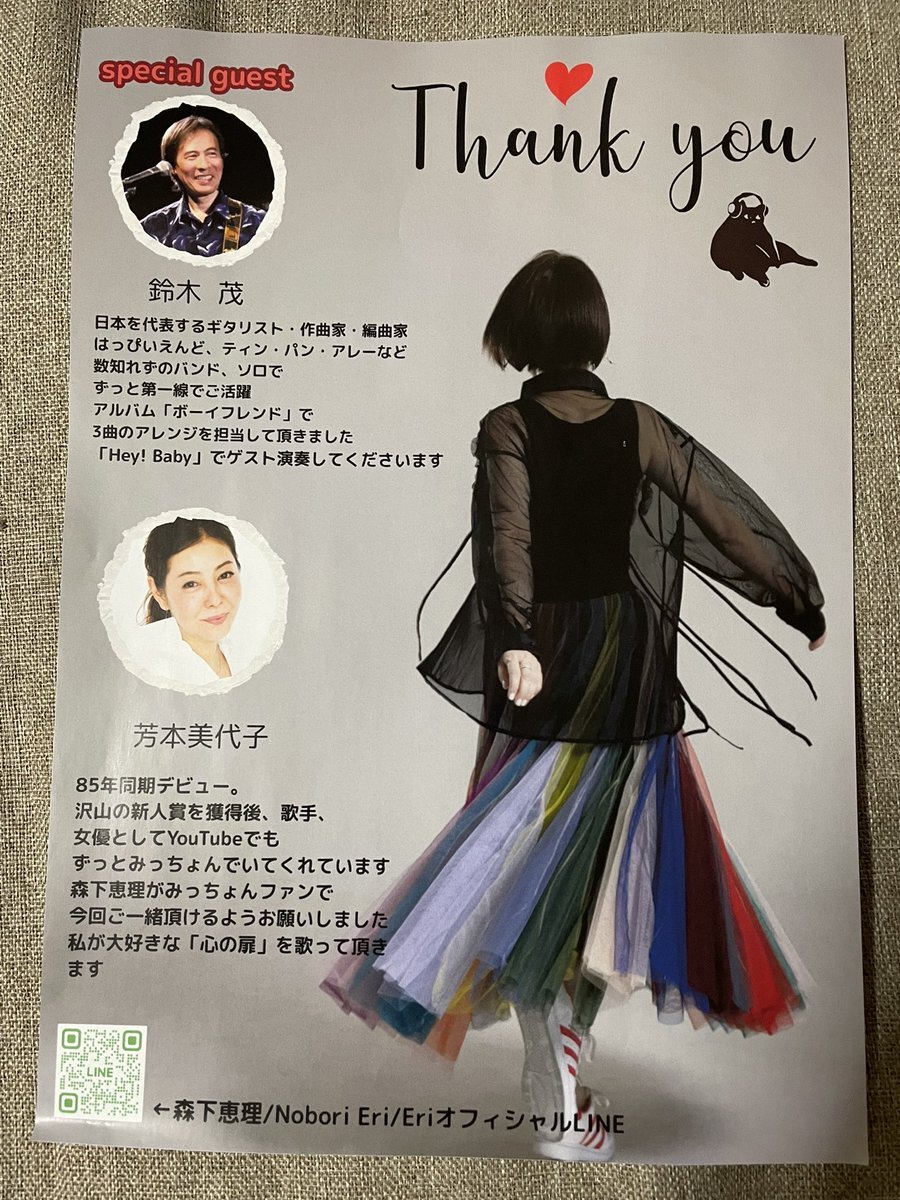 special guest
Thank you
鈴木 茂
日本を代表するギタリスト・作曲家・編曲家
はっぴいえんど、ティン・パン・アレーなど
数知れずのバンド、ソロで
ずっと第一線でご活躍
アルバム「ボーイフレンド」で
3曲のアレンジを担当して頂きました
「Hey! Baby」でゲスト演奏してくださいます
芳本美代子
85年同期デビュー。
沢山の新人賞を獲得後、歌手、
女優としてYouTubeでも
ずっとみっちょんでいてくれています
森下恵理がみっちょんファンで
今回ご一緒頂けるようお願いしました
私が大好きな「心の扉」を歌って頂き
ます
LINE
←森下恵理/Nobori Eri/EriオフィシャルLINE